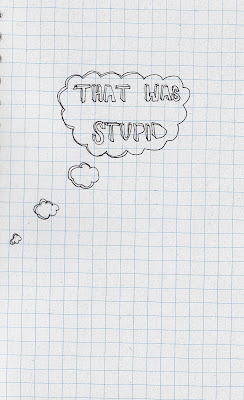 THAT WAS
STUPID